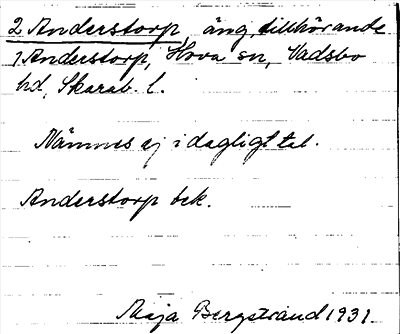 2 Anderstorp, äng, tillhörande
1 Anderstorp, Hova sn, Vadsbo
hd, Skarab. l.
Nämnes ej i dagligt tal.
Anderstorp bek.
Maja Bergstrand 1931